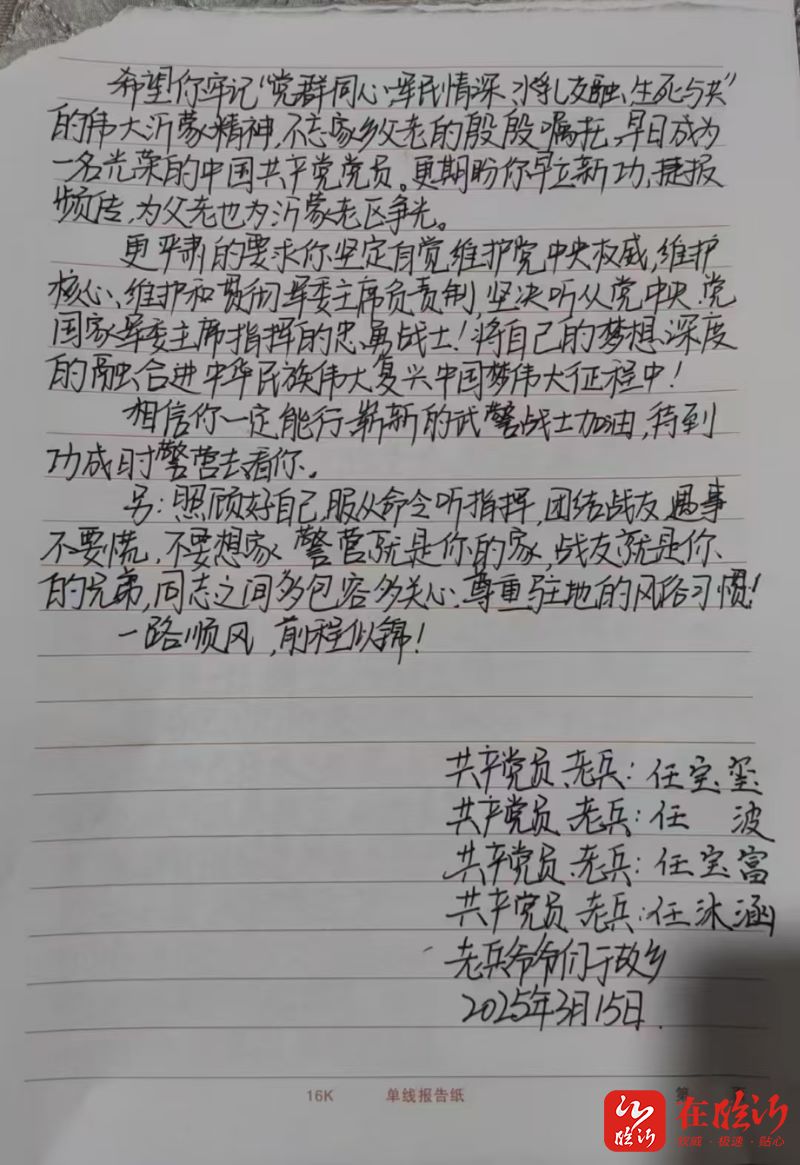 希望你牢记“党群同心、军民情深、水乳交融、生死与共”
的伟大沂蒙精神，不忘家乡父老的殷殷嘱托，早日成为
一名光荣的中国共产党党员。更期盼你早立新功，捷报
频传，为父老也为沂蒙老区争光。
更严肃的要求你坚定自觉维护党中央权威，维护
核心、维护和贯彻军委主席负责制，坚决听从党中央、党
国家军委主席指挥的忠勇战士！将自己的梦想深度
的融合进中华民族伟大复兴中国梦伟大征程中！
相信你一定能行，崭新的武警战士加油，待到
功成时警营去看你。
另：照顾好自己，服从命令听指挥，团结战友，遇事
不要慌，不要想家，警营就是你的家，战友就是你
的兄弟，同志之间多包容多关心，尊重驻地的风俗习惯！
一路顺风，前程似锦！
共产党员、老兵：任宝玺
共产党员、老兵：任 波
共产党员、老兵：任宝富
共产党员、老兵：任沐涵
老兵爷爷们于故乡
2025年3月15日.
16K 单线报告纸 第 页
在临沂
临沂
权威·极速·贴心